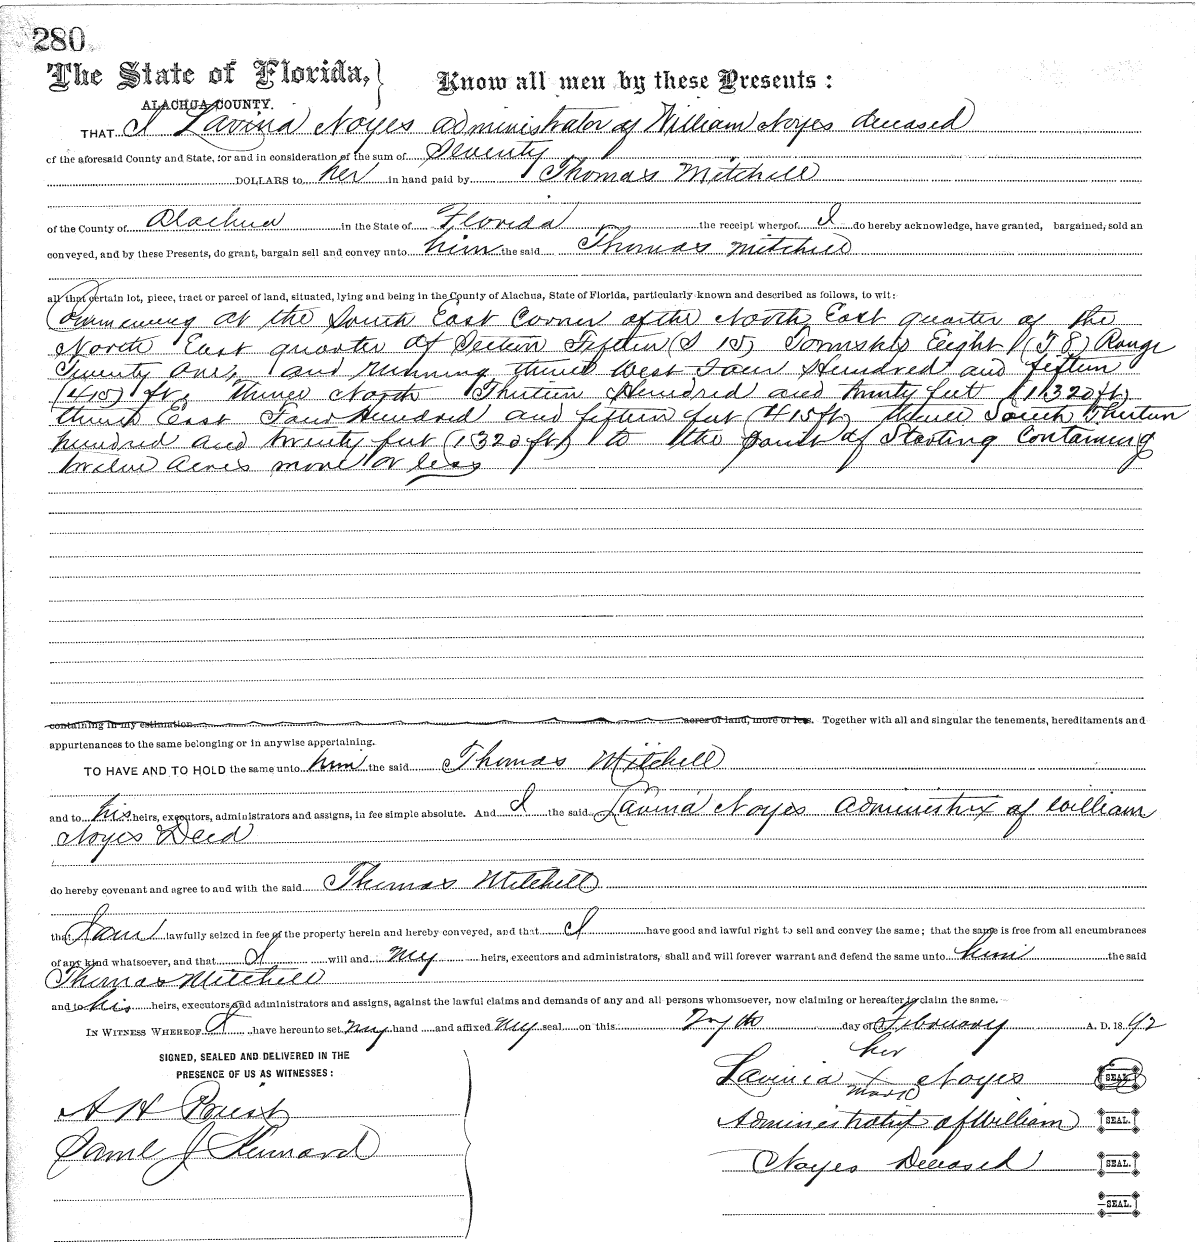 280
The State of Florida, } Know all men by these Presents:
ALACHUA COUNTY.
THAT I Lavina Noyes administrator of William Noyes deceased
of the aforesaid County and State, for and in consideration of the sum of Seventy
DOLLARS to her in hand paid by Thomas Mitchell
of the County of Alachua in the State of Florida the receipt whereof I do hereby acknowledge, have granted, bargained, sold an
conveyed, and by these Presents, do grant, bargain sell and convey unto him the said Thomas Mitchell
all that certain lot, piece, tract or parcel of land, situated, lying and being in the County of Alachua, State of Florida, particularly known and described as follows, to wit:
Commencing at the South East Corner of the North East quarter of the
North East quarter of Section Fifteen (S 15) Township Eeight (T 8) Range
Twenty One, and running thence West Four Hundred and fifteen
(415) ft, Thence North Thirteen Hundred and twenty feet (1320 ft)
thence East Four Hundred and fifteen feet (415 ft) thence South Thirteen
hundred and twenty feet (1320 ft) to the point of Starting Containing
twelve acres more or less
containing in my estimation acres of land, more or less. Together with all and singular the tenements, hereditaments and
appurtenances to the same belonging or in anywise appertaining.
TO HAVE AND TO HOLD the same unto him the said Thomas Mitchell
and to his heirs, executors, administrators and assigns, in fee simple absolute. And I the said Lavina Noyes administrix of William
Noyes Decd
do hereby covenant and agree to and with the said Thomas Mitchell
that I am lawfully seized in fee of the property herein and hereby conveyed, and that I have good and lawful right to sell and convey the same; that the same is free from all encumbrances
of any kind whatsoever, and that I will and my heirs, executors and administrators, shall and will forever warrant and defend the same unto him the said
Thomas Mitchell
and to his heirs, executors and administrators and assigns, against the lawful claims and demands of any and all persons whomsoever, now claiming or hereafter to claim the same.
IN WITNESS WHEREOF I have hereunto set my hand and affixed my seal on this day of February A. D. 1892
SIGNED, SEALED AND DELIVERED IN THE
PRESENCE OF US AS WITNESSES:
her
Lavinia X Noyes SEAL.
mark
A H Priest
Administratrix of William SEAL.
J Kennard
Noyes Deceased SEAL.
SEAL.